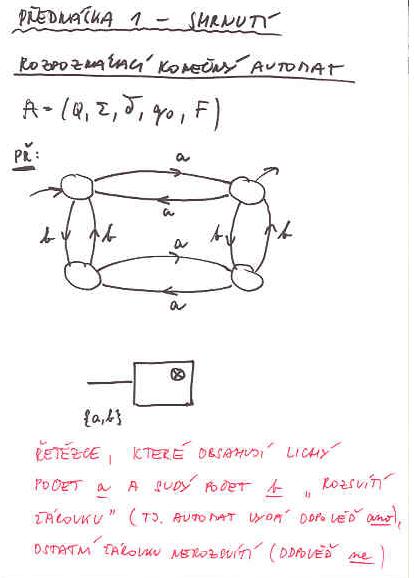 PŘEDNÁŠKA 1 – SHRNUTÍ
ROZPOZNÁVACÍ KONEČNÝ AUTOMAT
A = (Q, Σ, δ, q0, F)
PŘ:
a
a
b b b b
a
a
{a,b}
ŘETĚZCE, KTERÉ OBSAHUJÍ LICHÝ
POČET a A SUDÝ POČET b „ROZSVÍTÍ
ŽÁROVKU" (TJ. AUTOMAT VYDÁ ODPOVĚĎ ano),
OSTATNÍ ŽÁROVKU NEROZSVÍTÍ (ODPOVĚĎ ne)